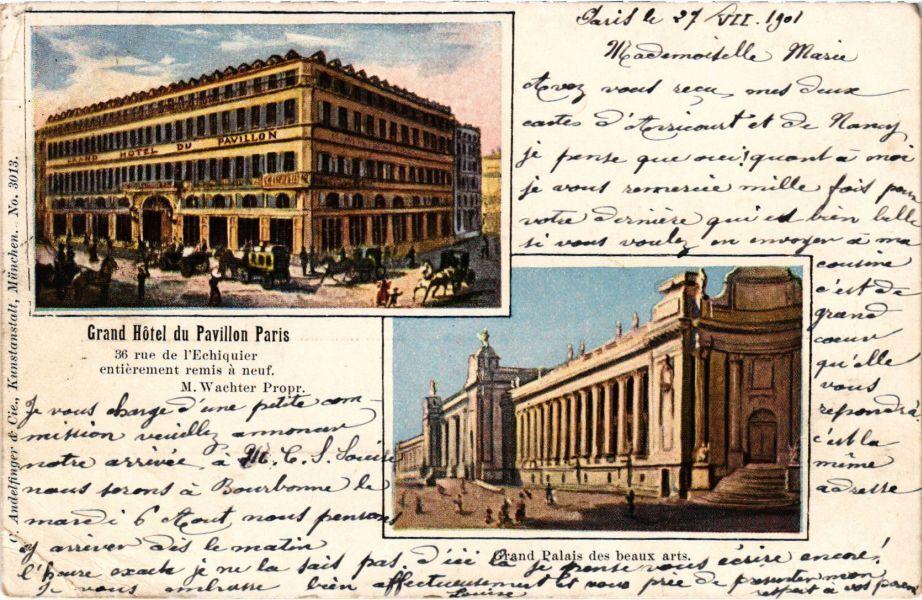 Paris le 27 VII. 1901
Mademoiselle Marie
Avez vous reçu mes deux
cartes d'Avricourt et de Nancy
je pense que oui! quant à moi
je vous remercie mille fois pour
votre dernière qui est bien belle
si vous voulez en envoyer à ma
cousine
c'est de
grand
coeur
qu'elle
vous
repondra
c'est la
même
adresse
GRAND HOTEL DU PAVILLON
C. Andelfinger & Cie., Kunstanstalt, München. No. 3013.
Grand Hôtel du Pavillon Paris
36 rue de l'Echiquier
entièrement remis à neuf.
M. Wachter Propr.
Je vous charge d'une petite com-
mission veuillez annoncer
notre arrivée à M. C. S. Louise
nous serons à Bourbonne le
mardi 6 Aout nous pensons
y arriver dès le matin
Grand Palais des beaux arts.
l'heure exacte je ne la sais pas. d'ici là je pense vous écrire encore!
Je vous embrasse bien affectueusement et vous prie de presenter mon
respect à vos parents
Louise